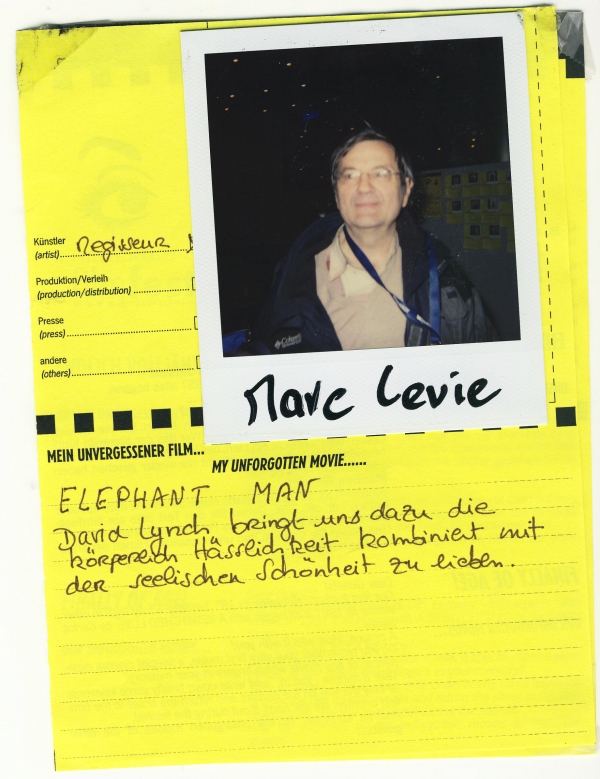 Künstler
(artist) Regisseur
Produktion/Verleih
(production/distribution)
Presse
(press)
andere
(others)
Columbia
Marc Levie
MEIN UNVERGESSENER FILM...
MY UNFORGOTTEN MOVIE......
ELEPHANT MAN
David Lynch bringt uns dazu die
körperlich Hässlichkeit kombiniert mit
der seelischen Schönheit zu lieben.